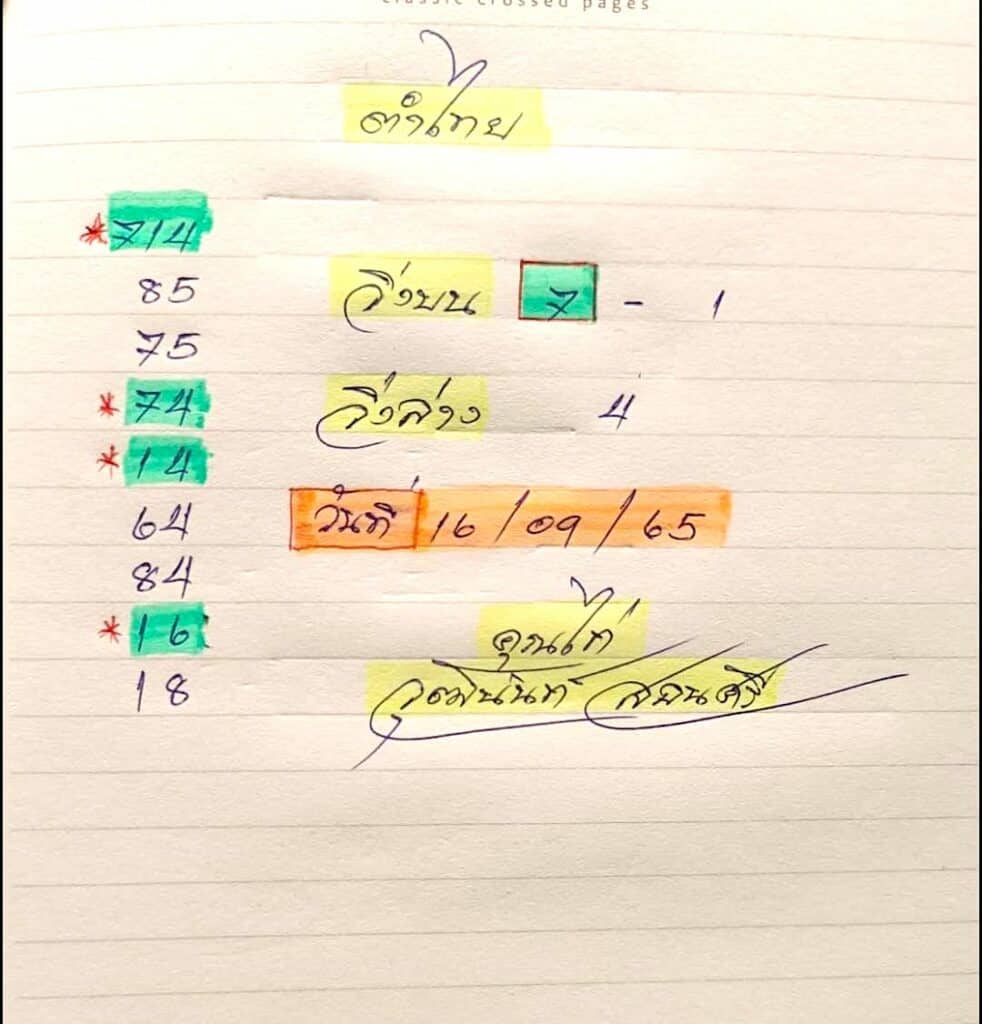 classic crossed pages
ตำไทย
*714
85 วิ่งบน 7 - 1
75
*74 วิ่งล่าง 4
*14
64 วันที่ 16/09/65
84
*16 คุณไก่
18 วุฒินันท์